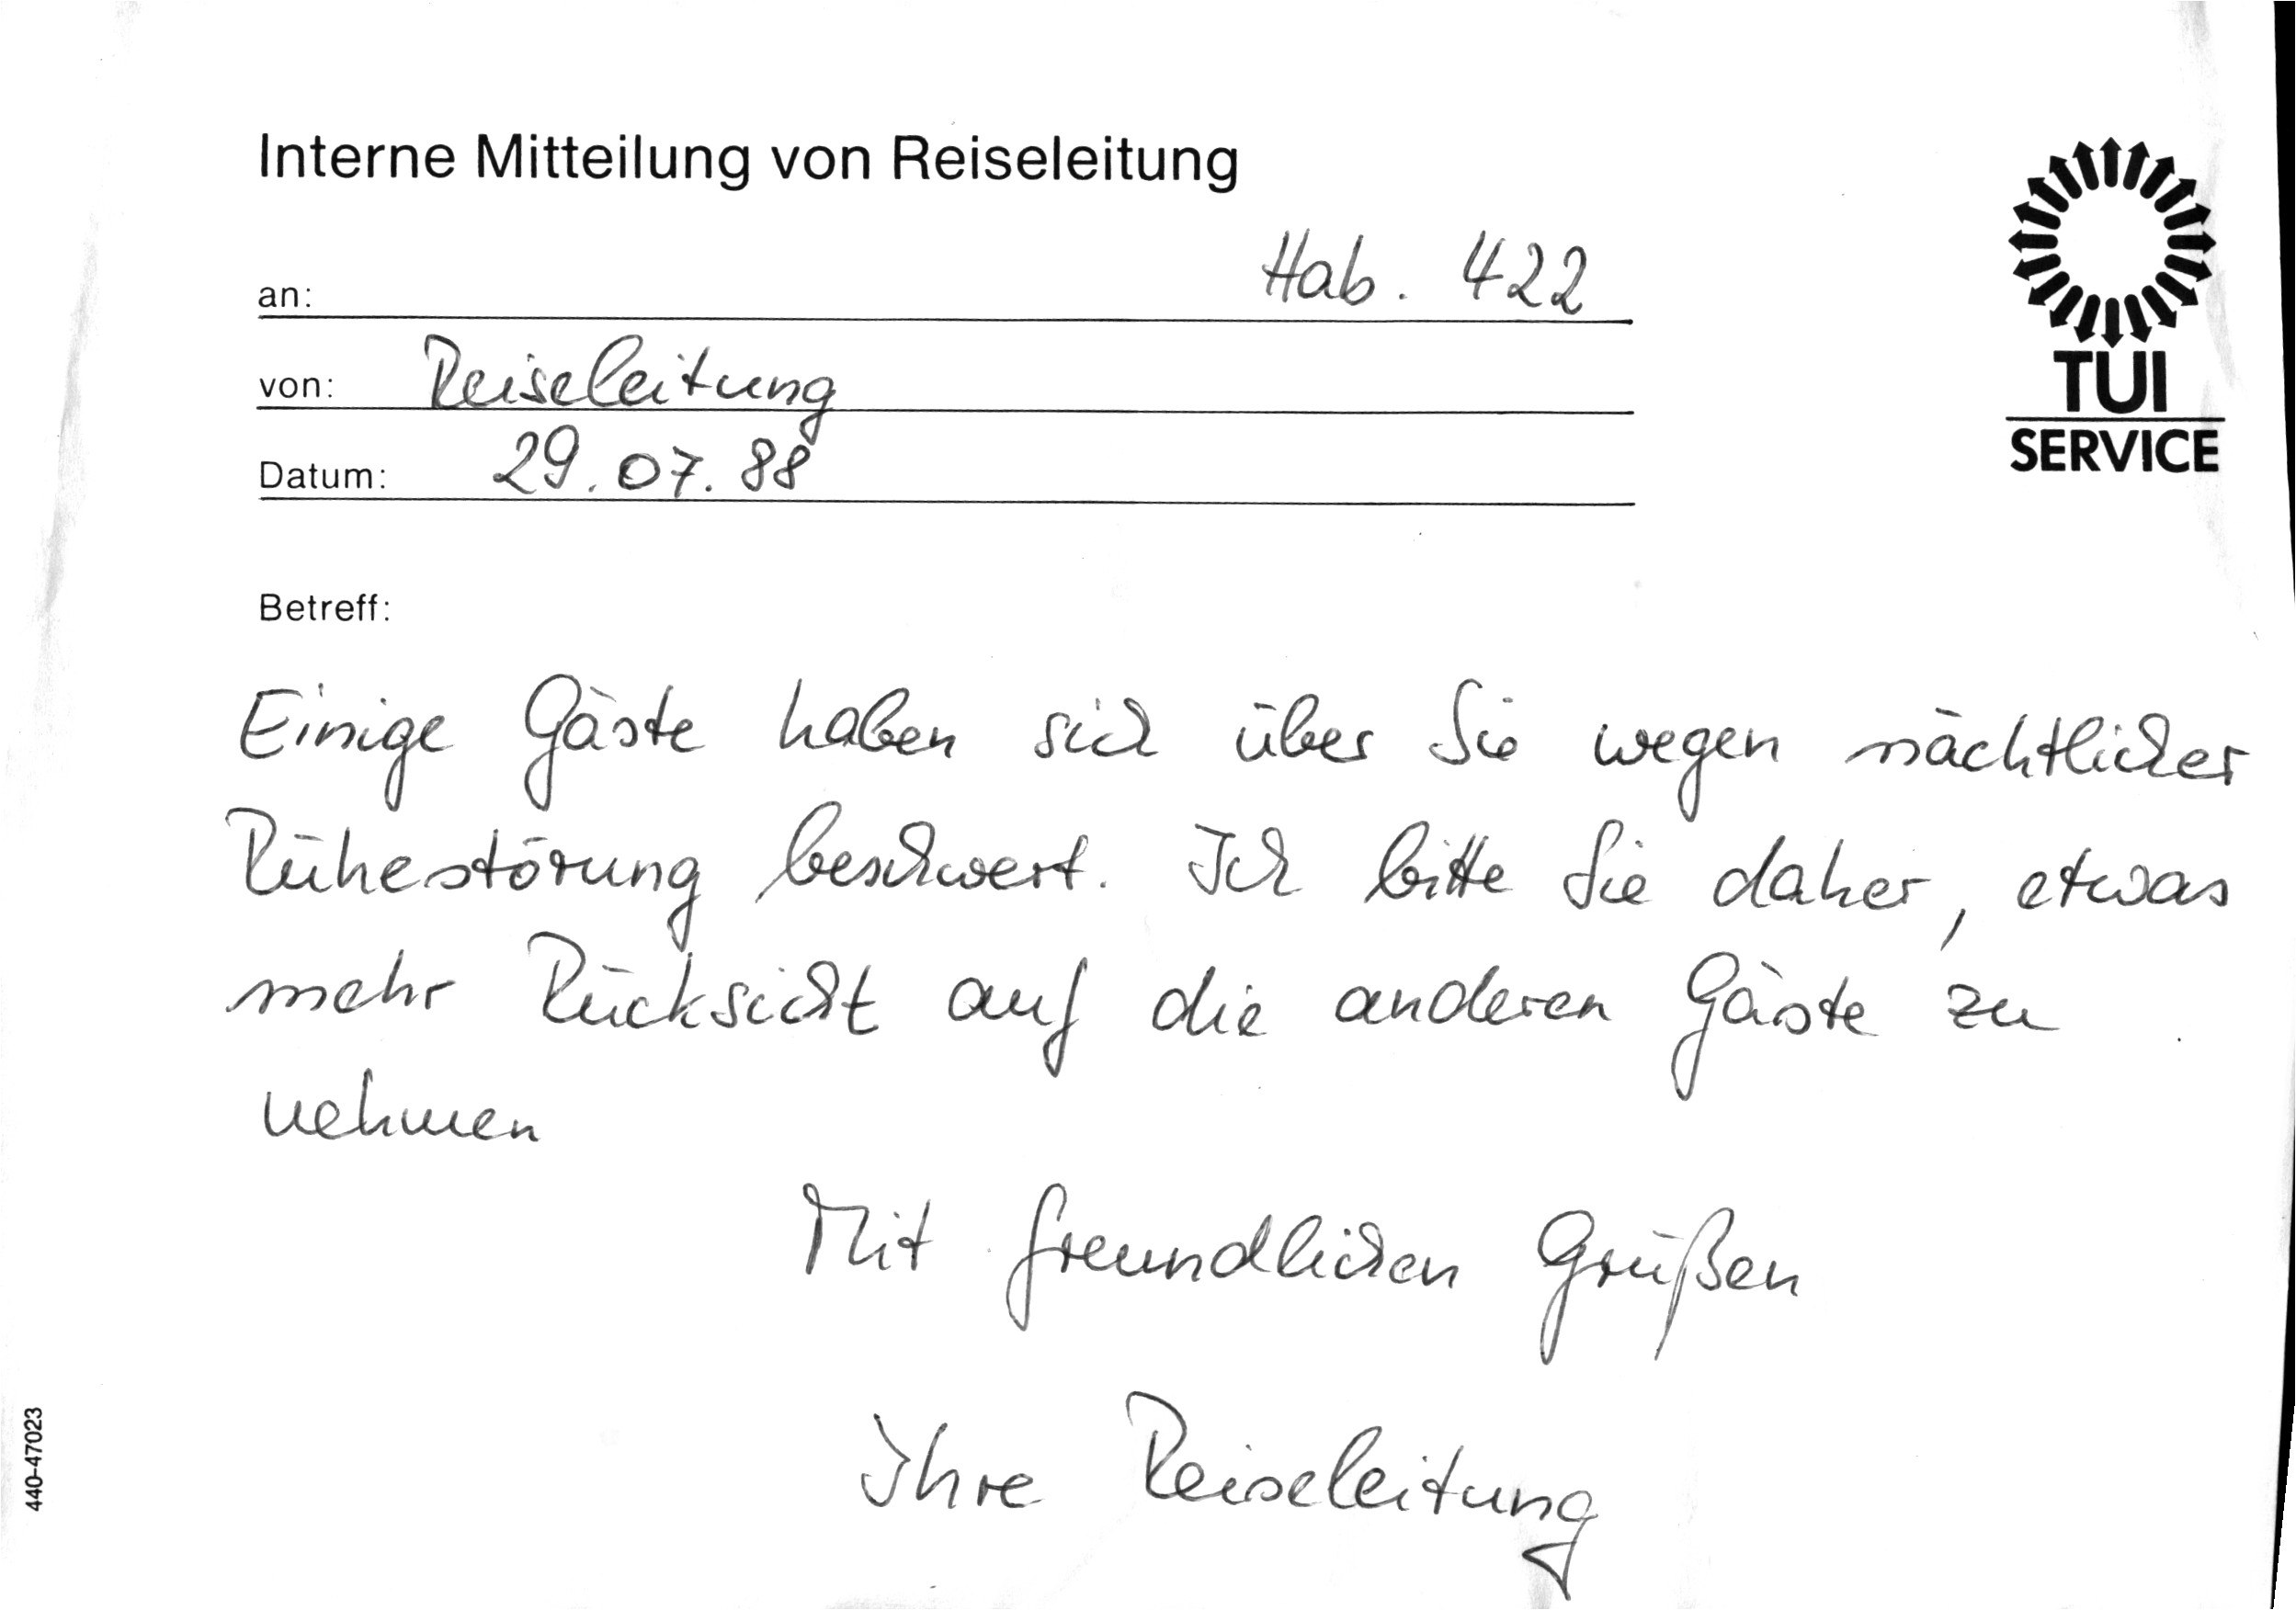 Interne Mitteilung von Reiseleitung
an: Hab. 422
von: Reiseleitung
Datum: 29.07.88
TUI
SERVICE
Betreff:
Einige Gäste haben sich über Sie wegen nächtlicher
Ruhestörung beschwert. Ich bitte Sie daher, etwas
mehr Rücksicht auf die anderen Gäste zu
nehmen
Mit freundlichen Grüßen
Ihre Reiseleitung
440-47023